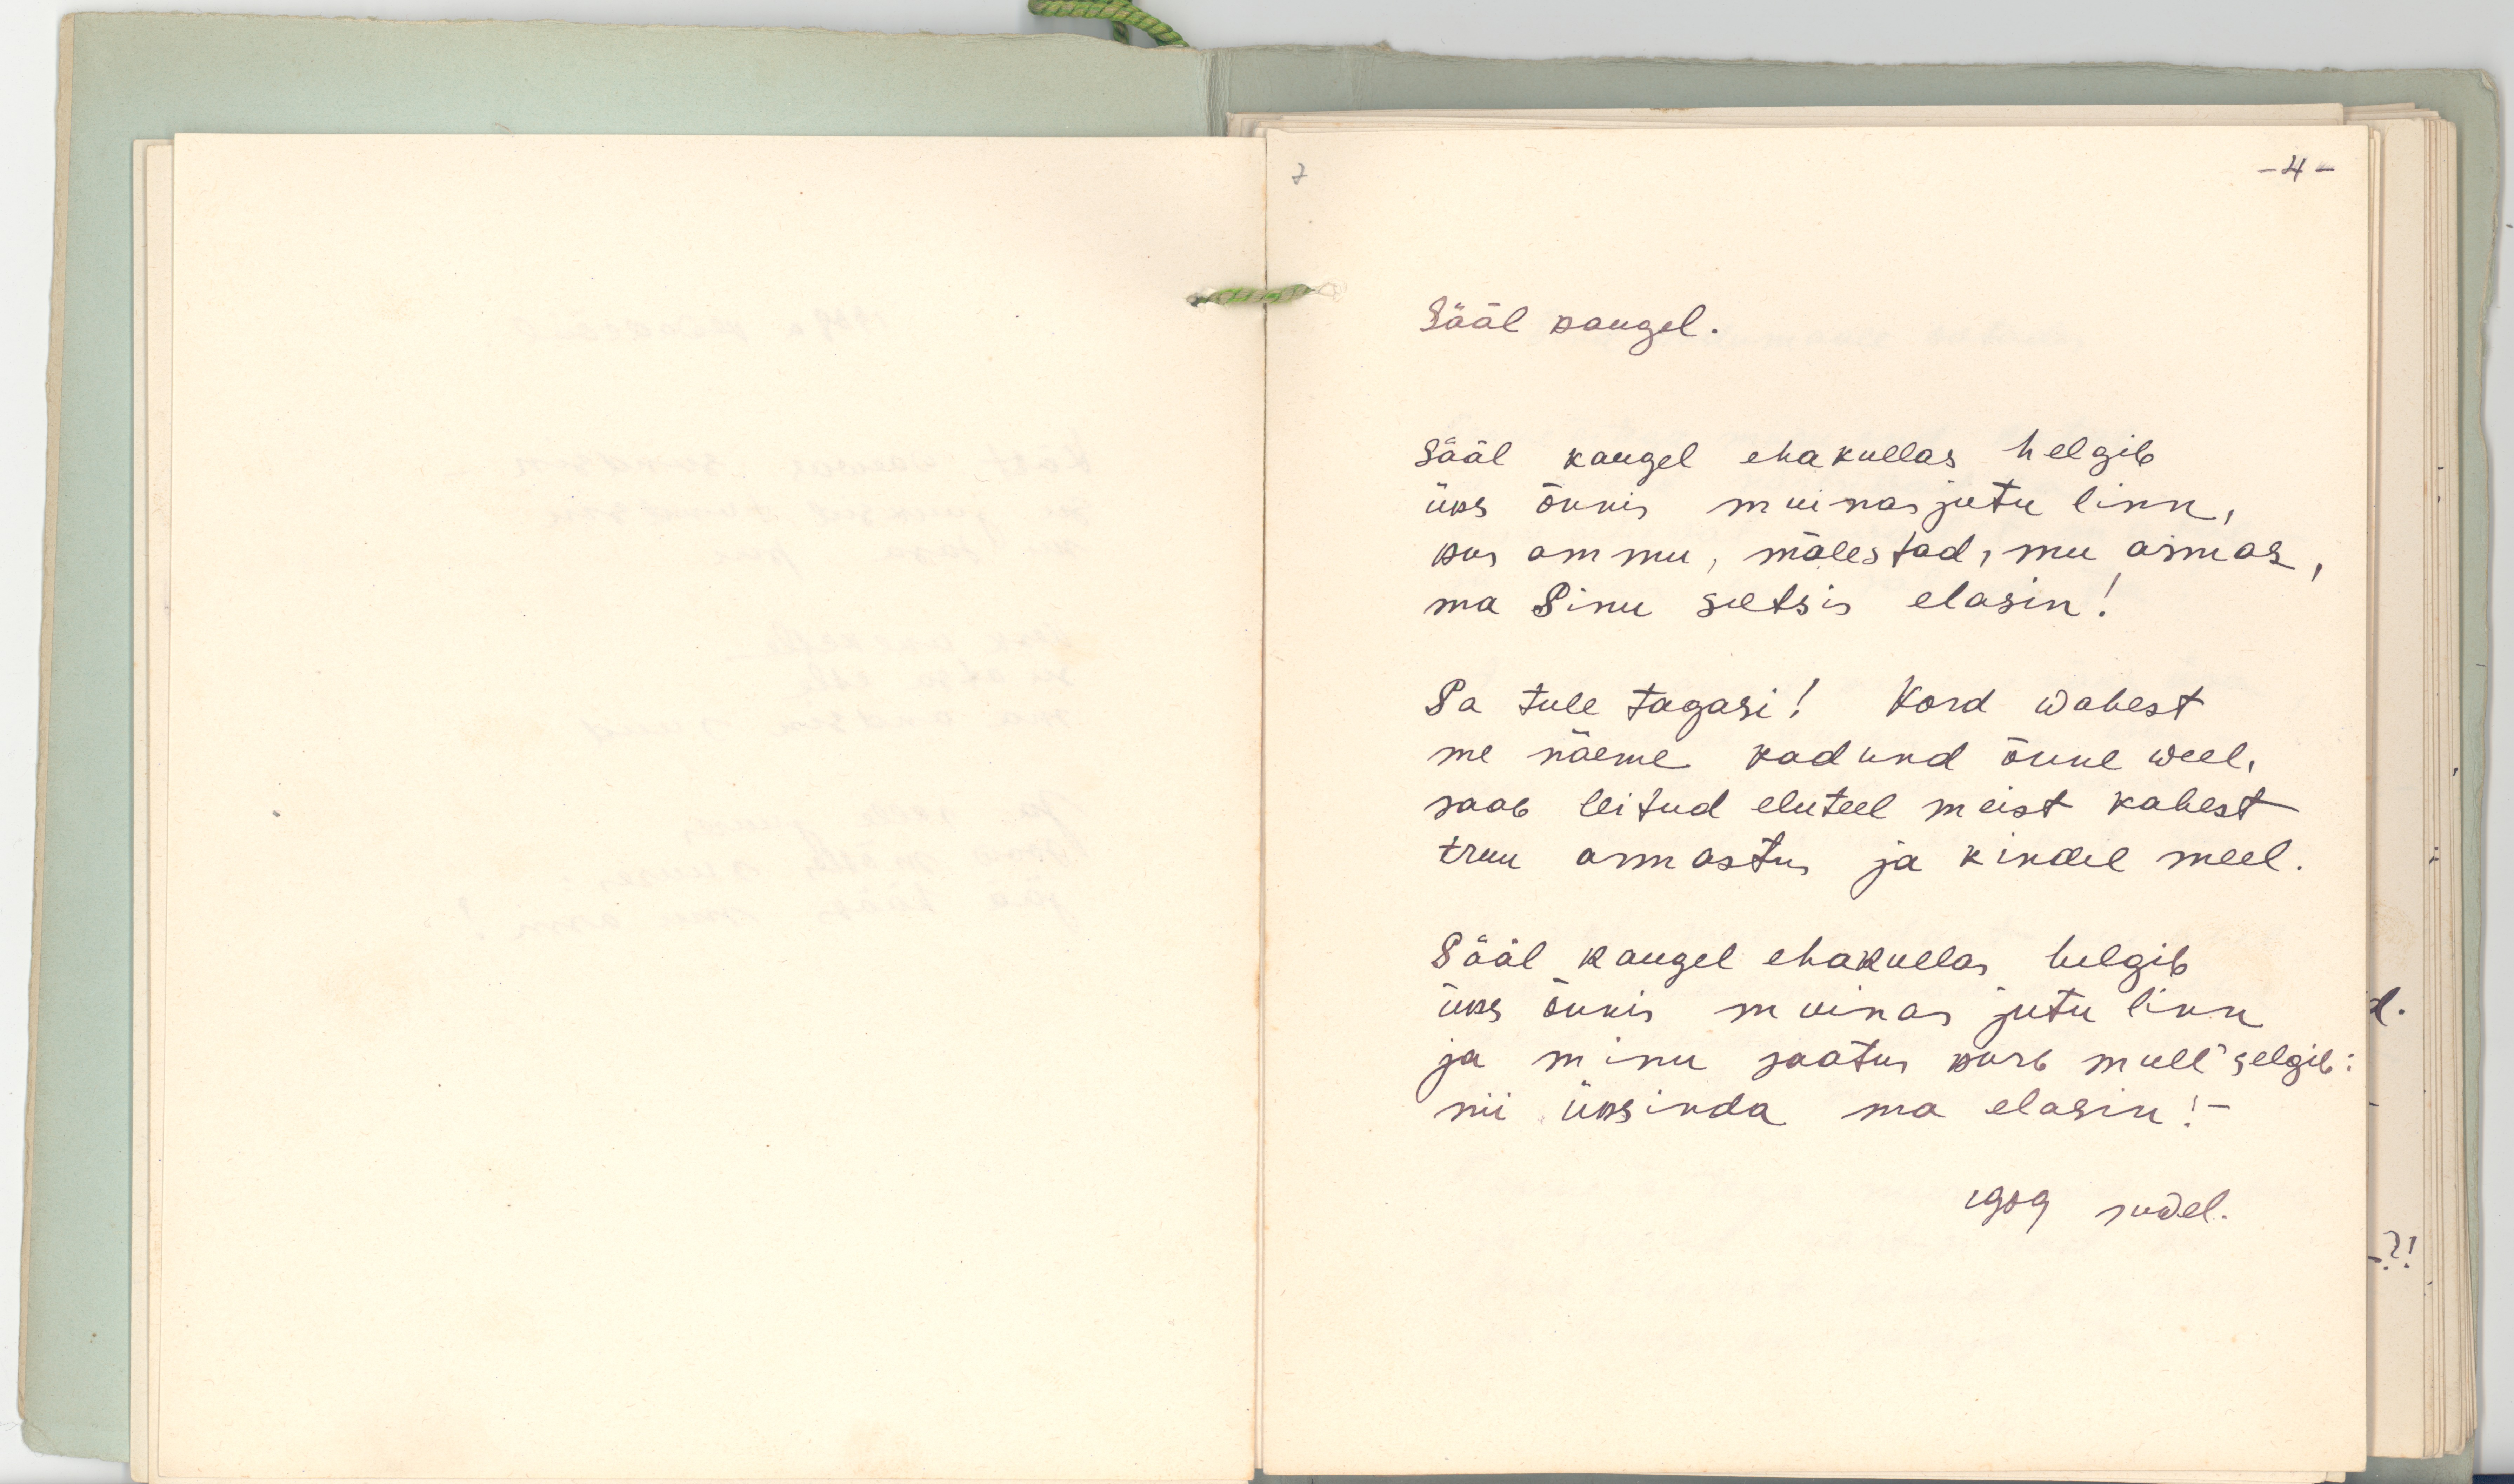 7
-4-
Sääl kaugel.
Sääl kaugel ehakullas helgib
üks õnnis muinasjutu linn,
kus ammu, mälestad, mu armas,
ma Sinu seltsis elasin!
Sa tule tagasi! Kord wahest
me näeme kadund õnne weel,
saab leitud eluteel meist kahest
truu armastus ja kindel meel.
Sääl kaugel ehakullas helgib
üks õnnis muinas jutu linn
ja minu saatus kurb mull' selgib:
nii üksinda ma elasin!-
1909 suwel.
d.
-?!